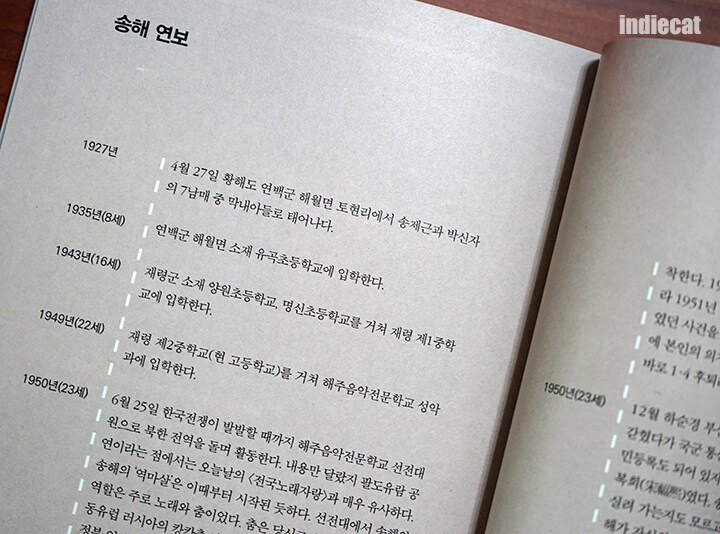 indiecat
송해 연보
1927년
4월 27일 황해도 연백군 해월면 토현리에서 송제근과 박신자
의 7남매 중 막내아들로 태어나다.
1935년(8세)
연백군 해월면 소재 유곡초등학교에 입학한다.
1943년(16세)
재령군 소재 양원초등학교, 명신초등학교를 거쳐 재령 제1중학
교에 입학한다.
1949년(22세)
재령 제2중학교(현 고등학교)를 거쳐 해주음악전문학교 성악
과에 입학한다.
1950년(23세)
6월 25일 한국전쟁이 발발할 때까지 해주음악전문학교 선전대
원으로 북한 전역을 돌며 활동한다. 내용만 달랐지 팔도유람 공
연이라는 점에서는 오늘날의 〈전국노래자랑〉과 매우 유사하다.
송해의 '역마살'은 이때부터 시작된 듯하다. 선전대에서 송해의
역할은 주로 노래와 춤이었다. 춤은 당시
동유럽 러시아의
착한다. 19
라 1951년
였던 사건을
에 본인의 의
바로 1·4 후퇴
1950년(23세)
12월 하순경 부산
간했다가 국군 통신
민등록도 되어 있지
복희(宋福熙)였다.
실려 가는지도 모르고
해가 자신